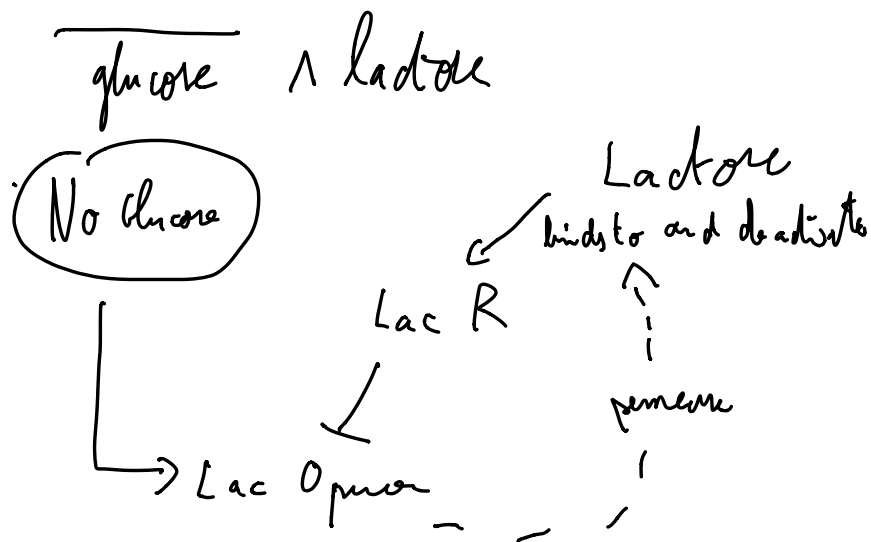 glucose ∧ lactose
No Glucose
Lactose
binds to and deactivates
Lac R
permease
Lac Operon